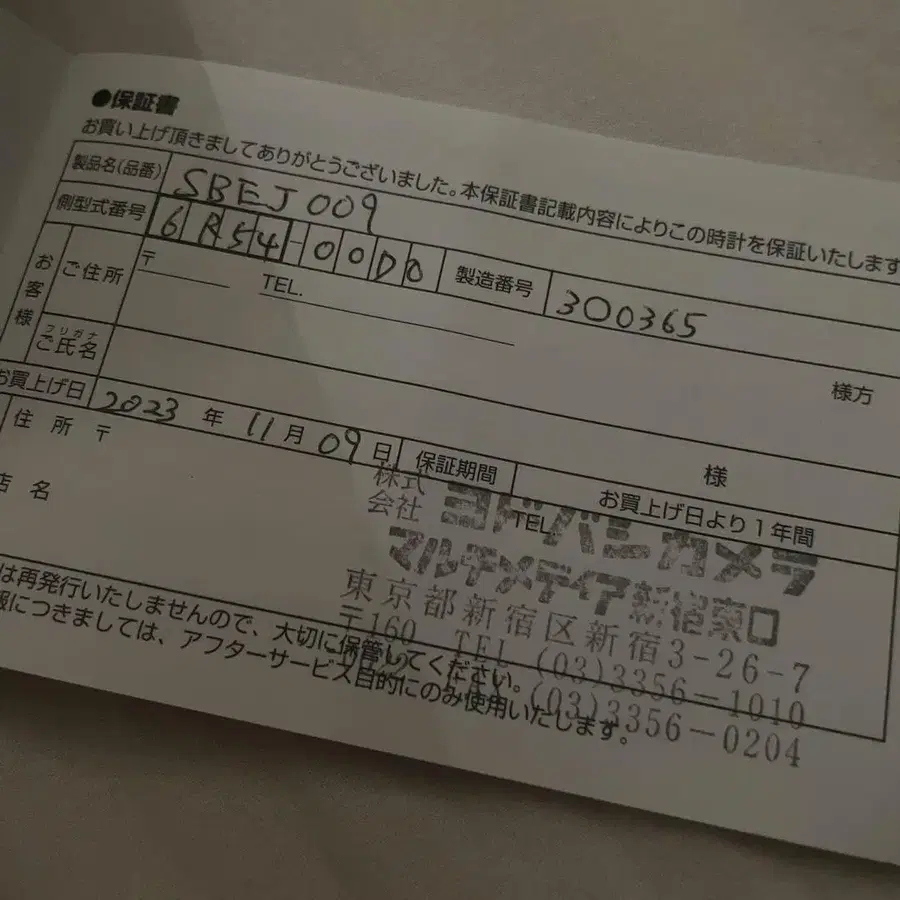 ●保証書
お買い上げ頂きましてありがとうございました。本保証書記載内容によりこの時計を保証いたします
製品名(品番) SBEJ009
側型式番号 6R54-00D0 製造番号 300365
お客様 ご住所 〒 TEL.
様方
フリガナ
ご氏名 様
お買上げ日 2023年11月09日 保証期間 お買上げ日より1年間
住所 〒 TEL.
店名
株式会社 ヨドバシカメラ
マルチメディア新宿東口
東京都新宿区新宿3-26-7
〒160 TEL (03)3356-1010
(03)3356-0204
は再発行いたしませんので、大切に保管してください。
報につきましては、アフターサービス目的にのみ使用いたします。